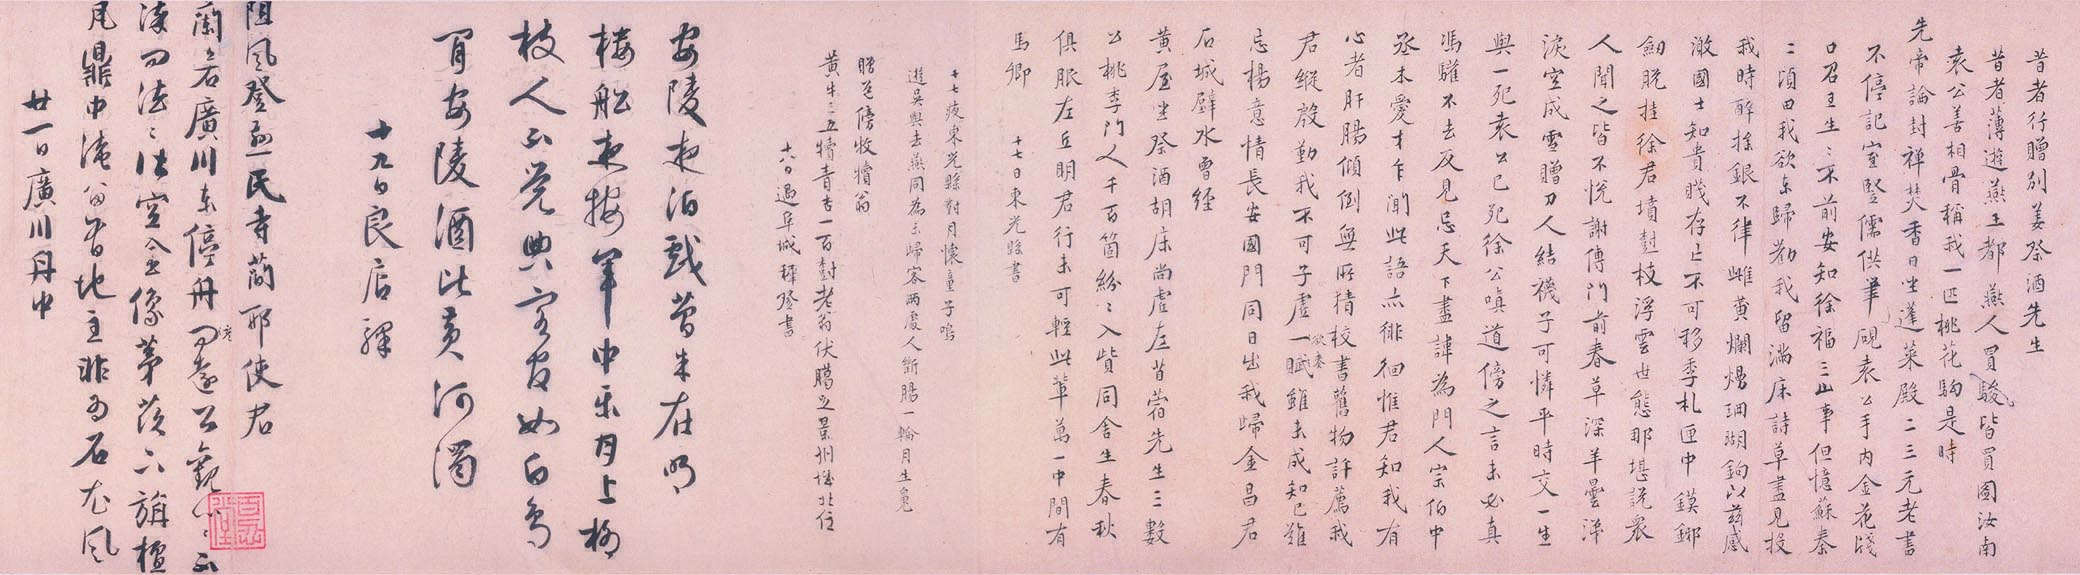 昔者行贈別姜祭酒先生
昔者薄遊燕王都燕人買駿皆買圖汝南
袁公善相骨稱我一匹桃花駒是時
先帝論封禪焚香日坐蓬萊殿二三元老書
不停記室豎儒供筆硯袁公手內金花牋
口召王生〻不前安知徐福三山事但憶蘇秦
二頃田我欲東歸勸我留滿床詩草盡見投
我時醉捨銀不律雌黃爛熳珊瑚鉤以茲感
激國士知貴賤存亡不可移季札匣中鏌鋣
劍脫挂徐君墳樹枝浮雲世態那堪說眾
人聞之皆不悅謝傅門前春草深羊曇淚
淚空成雪贈刀人結襪子可憐平時交一生
與一死袁公已死徐公嗔道傍之言未必真
馮驩不去反見忌天下盡諱為門人宗伯中
丞本愛才乍聞此語亦徘徊惟君知我有
心者肝腸傾倒無所猜校書舊物許薦我
君縱殷勤我不可子虛欲奏一賦雖未成知己雖
忘楊意情長安國門同日出我歸金昌君
石城璧水曾經
黃屋坐祭酒胡床尚虛左苜蓿先生三數
公桃李門人千百箇紛〻入貲同舍生春秋
俱服左丘明君行未可輕此輩萬一中間有
馬卿
十七日東光縣書
十七夜東光縣對月懷童子鳴
遊吳與去燕同為未歸客兩處人斷腸一輪月生魄
贈道傍牧犢翁
黃牛三五犢青杏一百樹老翁伏臘足景州城北住
十八日過阜城驛登書
安陵夜泊戲簡朱在明
樓船夜擁軍中樂月上柳
枝人不覺與君官如白鳥
眉安陵酒比黃河濁
十九日良店驛
阻風登無民寺簡邢使君
蘭若廣川東停舟問遠公觀心〻正
法法〻法空金像茅茨下旃檀
瓦鼎中淹留舊地主非為石尤風
廿一日廣川舟中